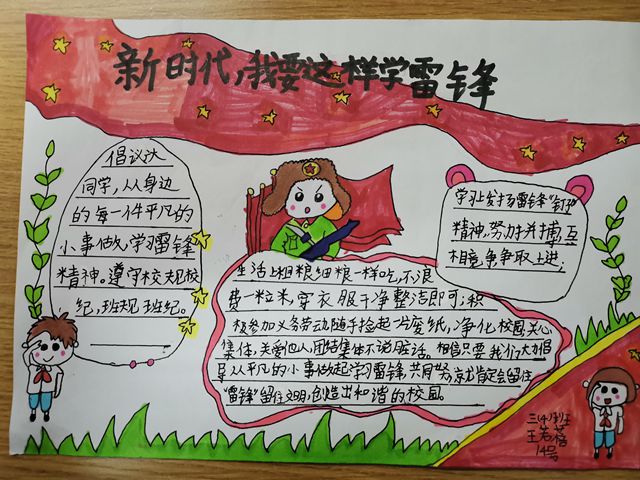 新时代,我要这样学雷锋
倡议达
同学,从身边
的每一件平凡的
小事做,学习雷锋
精神。遵守校规校
纪,班规班纪。
学习上发扬雷锋“钉子”
精神,努力并搏互
相竞争争取上进;
生活上粗粮细粮一样吃,不浪
费一粒米,穿衣服干净整洁即可;积
极参加义务劳动随手捡起片废纸,净化校园关心
集体,关爱他人团结集体不说脏话。相信只要我们大力倡
导从平凡的小事做起学习雷锋,共同努力,就肯定会留住
“雷锋”留住文明,创造出和谐的校园。
三(4)班
王若蓓
14号